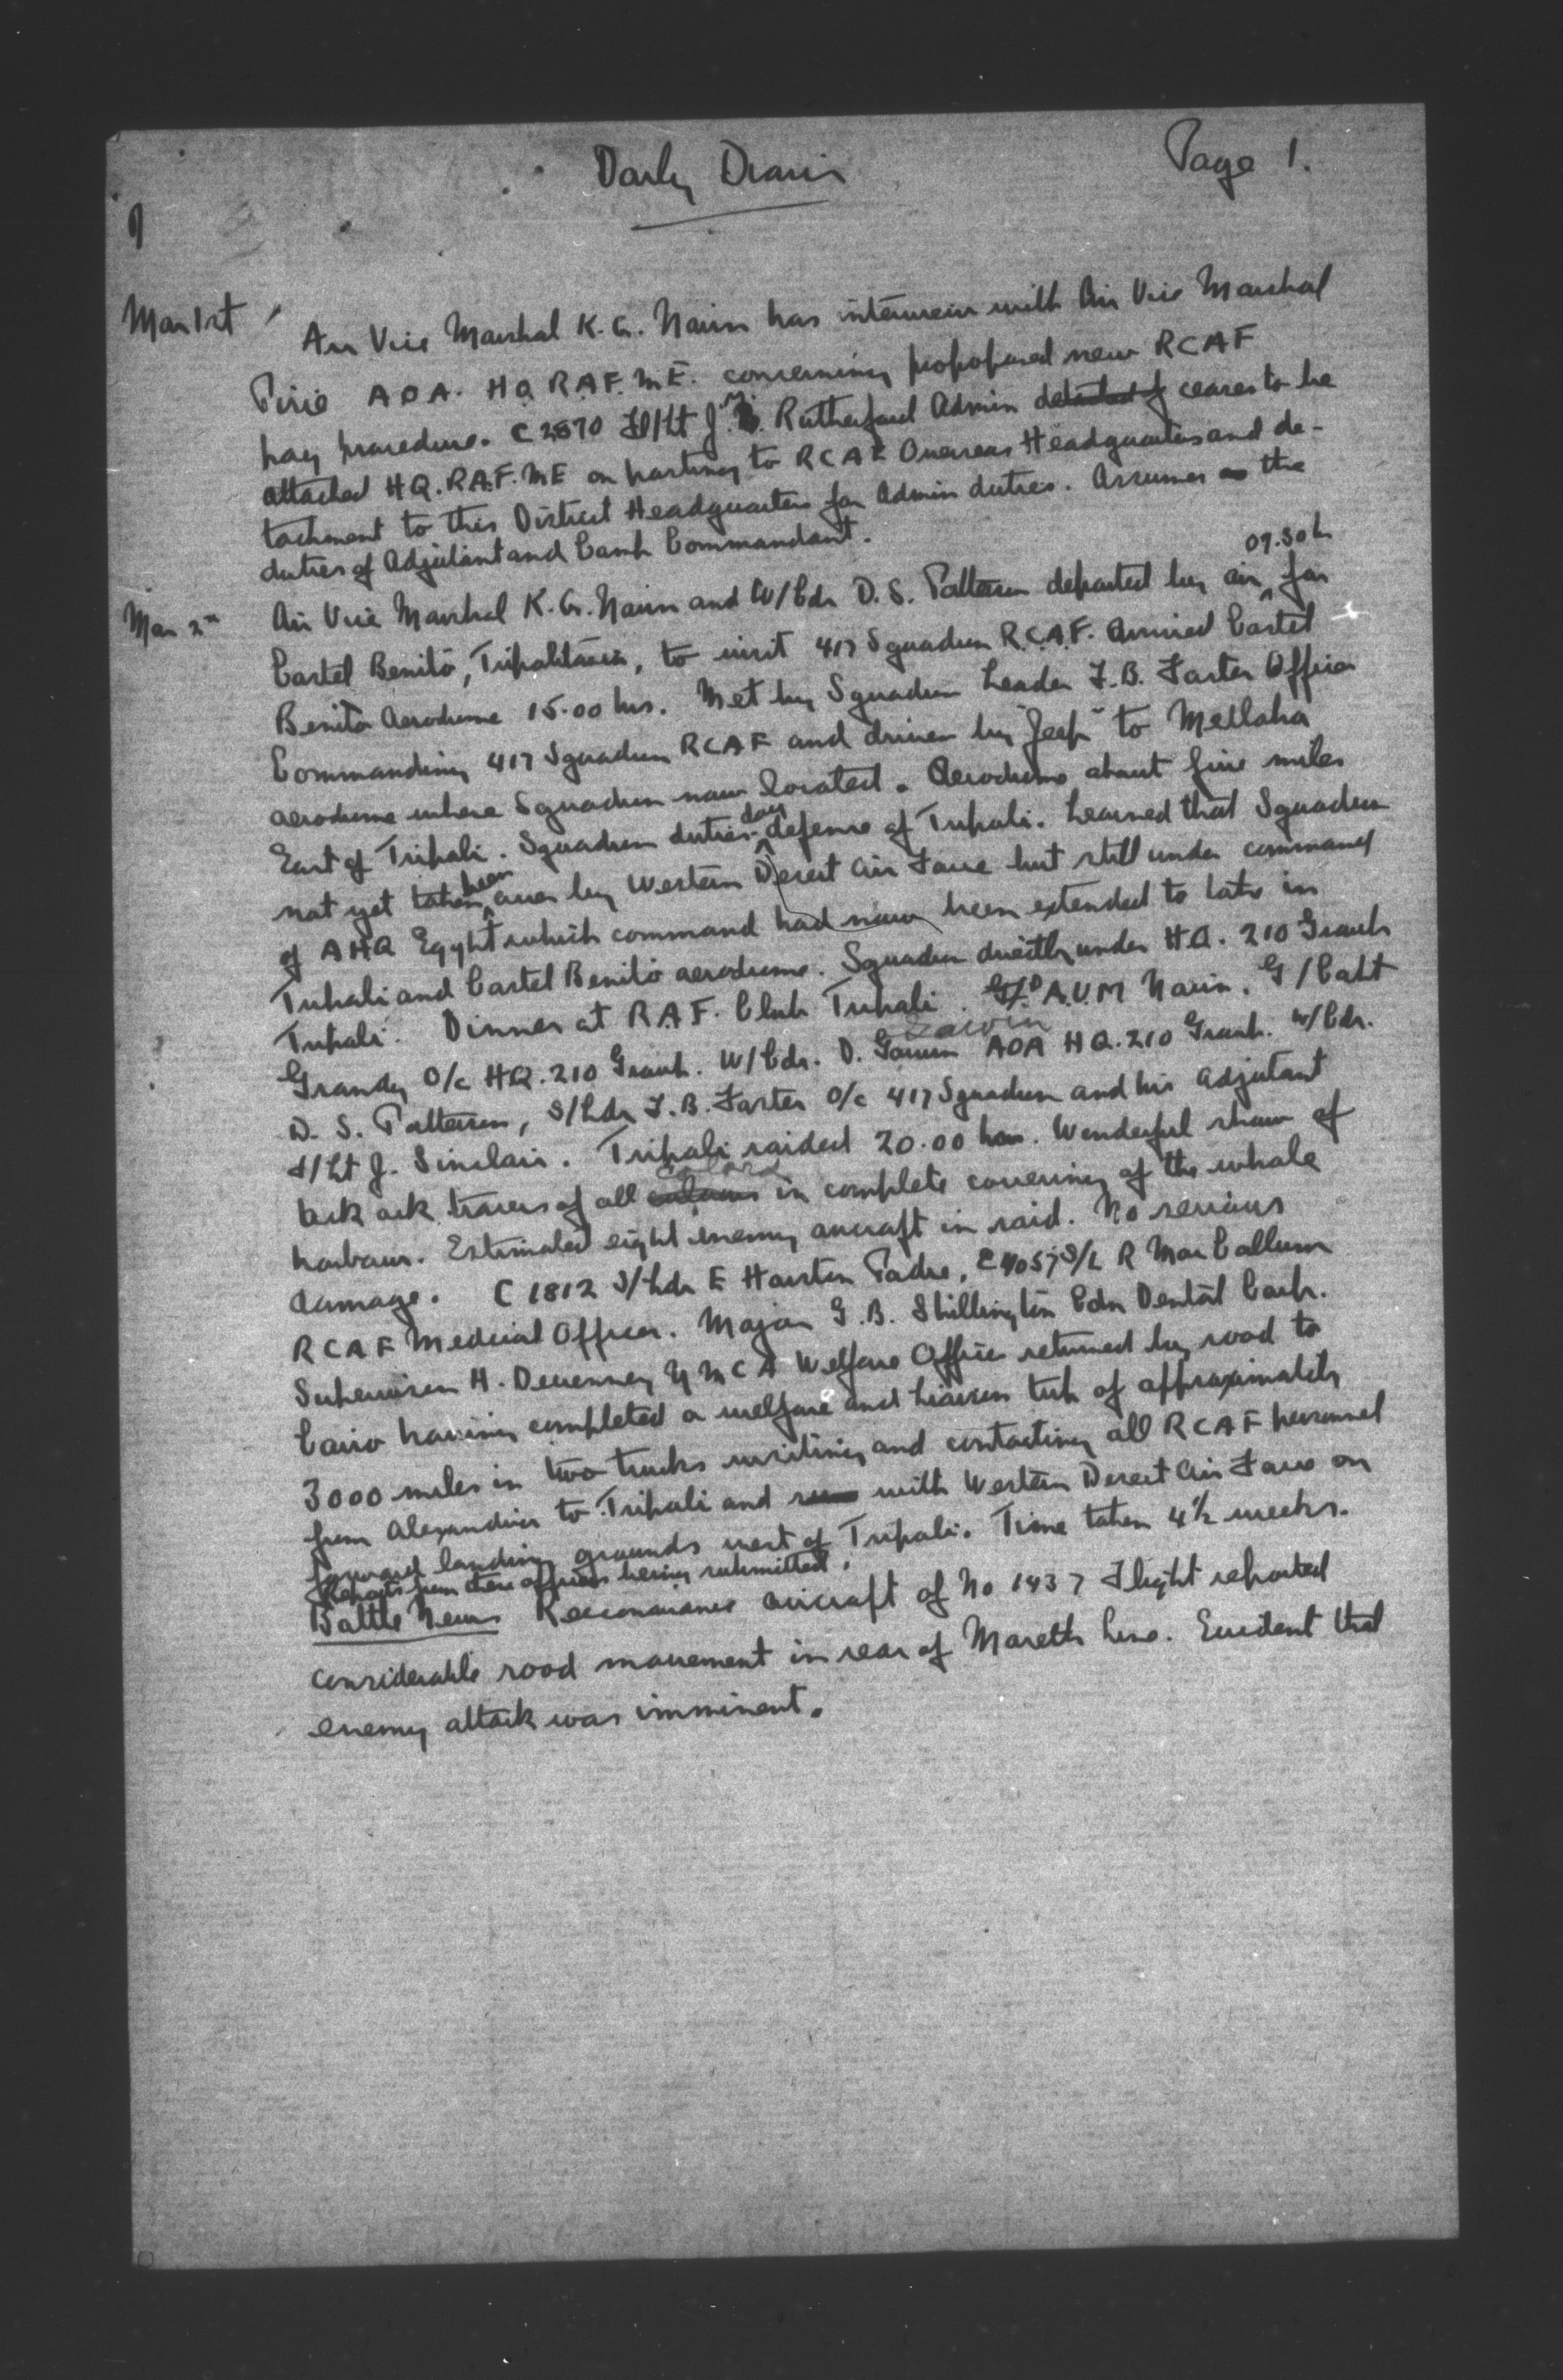 Daily Diary
Page 1.
Mar 1st
Air Vice Marshal K. G. Nairn has interview with Air Vice Marshal
Pirie A O A. HQ R.A.F. M.E. concerning proposed new RCAF
pay procedure. C 2870 Fl/Lt J. Rutherford Admin detached of ceases to be
attached HQ. R.A.F. ME on posting to RCAF Overseas Headquarters and de-
tachment to this District Headquarters for Admin duties. Assumes the
duties of Adjutant and Camp Commandant.
Mar 2nd
09.30 h
Air Vice Marshal K. G. Nairn and W/Cdr D. S. Patterson departed by air for
Castel Benito, Tripolitania, to visit 417 Squadron R.C.A.F. Arrived Castel
Benito Aerodrome 15.00 hrs. Met by Squadron Leader F. B. Foster Officer
Commanding 417 Squadron RCAF and driven by "Jeep" to Mellaha
aerodrome where Squadron now located. Aerodrome about five miles
East of Tripoli. Squadron duties - day defense of Tripoli. Learned that Squadron
not yet taken been over by Western Desert Air Force but still under command
of AHQ Egypt which command had now been extended to take in
Tripoli and Castel Benito aerodrome. Squadron directly under HQ. 210 Group
Tripoli. Dinner at R.A.F. Club Tripoli. A.V.M Nairn. G/Capt
Grandy O/c HQ. 210 Group. W/Cdr. D. AOA HQ. 210 Group. W/Cdr.
D. S. Patterson, S/Ldr F. B. Foster O/c 417 Squadron and his Adjutant
F/Lt J. Sinclair. Tripoli raided 20.00 hrs. Wonderful show of
Ack ack tracers of all colours colors in complete covering of the whole
harbour. Estimated eight enemy aircraft in raid. No serious
damage. C 1812 S/Ldr E Houston Padre, C 4057 S/L R MacCallum
RCAF Medical Officer. Major G. B. Shillington Cdn Dental Corp.
Supervisor H. Devenney Y M C A Welfare Officer returned by road to
Cairo having completed a welfare and liaison trip of approximately
3000 miles in two trucks visiting and contacting all RCAF personnel
from Alexandria to Tripoli and with Western Desert Air Force on
forward landing grounds west of Tripoli. Time taken 4½ weeks.
Reports from these officers being submitted.
Battle News Reconnaisance aircraft of No 1437 Flight reported
considerable road movement in rear of Mareth Line. Evident that
enemy attack was imminent.